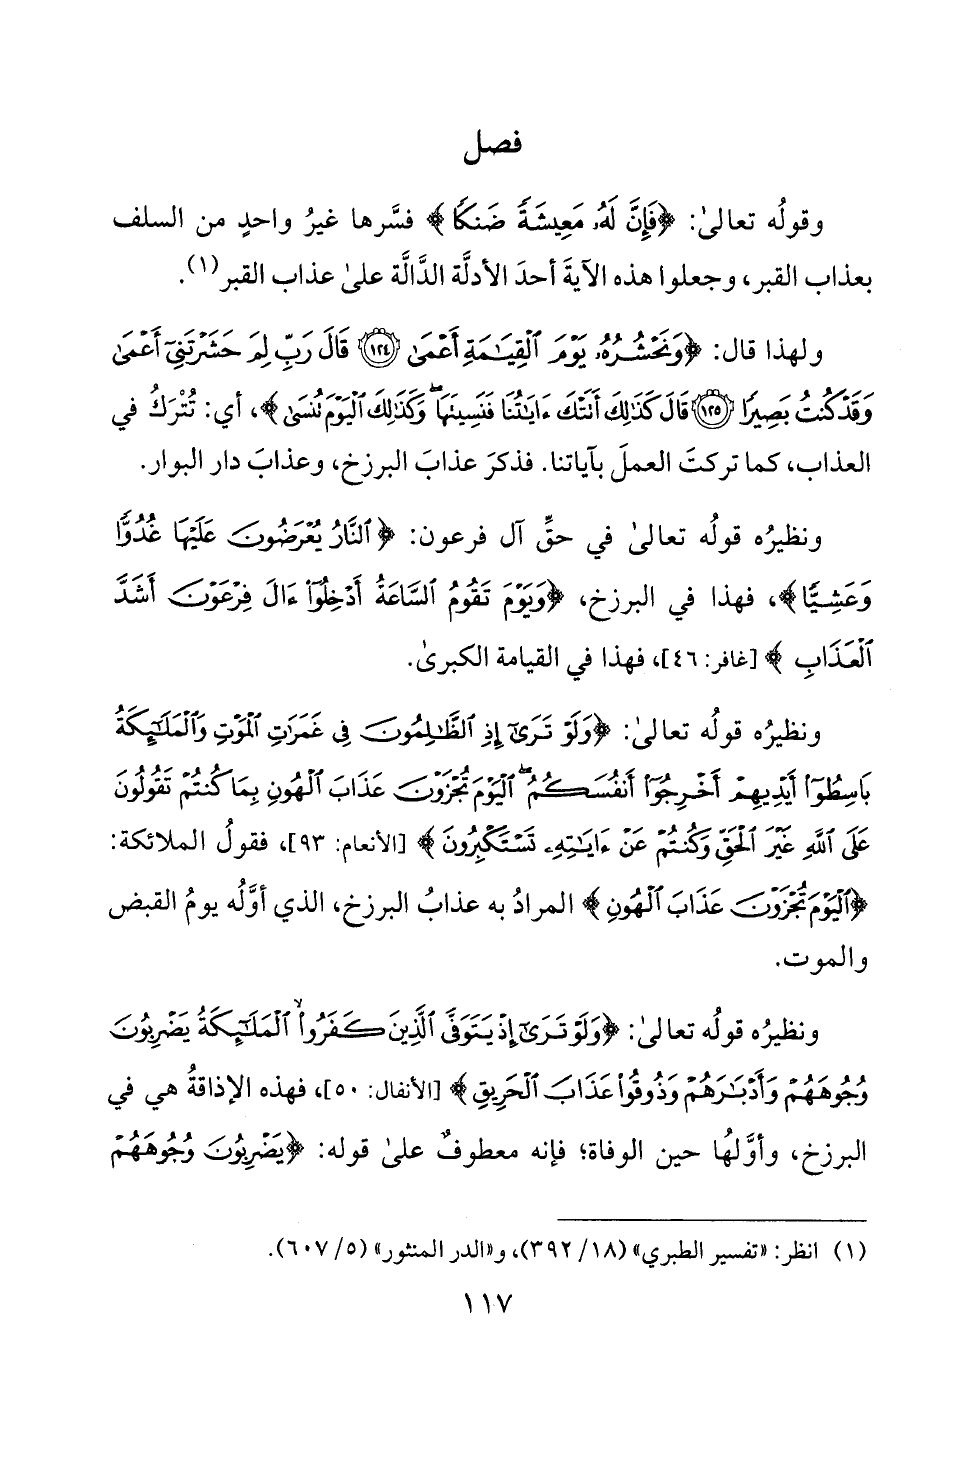 فصل
وقولُه تعالىٰ: ﴿فَإِنَّ لَهُۥ مَعِيشَةً ضَنكًا﴾ فسَّرها غيرُ واحدٍ من السلف
بعذاب القبر، وجعلوا هذه الآيةَ أحدَ الأدلَّة الدَّالَّة علىٰ عذاب القبر(١).
ولهذا قال: ﴿وَنَحْشُرُهُۥ يَوْمَ ٱلْقِيَـٰمَةِ أَعْمَىٰ ۝١٢٤ قَالَ رَبِّ لِمَ حَشَرْتَنِىٓ أَعْمَىٰ
وَقَدْ كُنتُ بَصِيرًا ۝١٢٥ قَالَ كَذَٰلِكَ أَتَتْكَ ءَايَـٰتُنَا فَنَسِينَهَا ۖ وَكَذَٰلِكَ ٱلْيَوْمَ نُنسَىٰ﴾، أي: تُتْرَكُ في
العذاب، كما تركتَ العملَ بآياتنا. فذكرَ عذابَ البرزخ، وعذابَ دار البوار.
ونظيرُه قولُه تعالىٰ في حقِّ آل فرعون: ﴿ٱلنَّارُ يُعْرَضُونَ عَلَيْهَا غُدُوًّا
وَعَشِيًّا﴾، فهذا في البرزخ، ﴿وَيَوْمَ تَقُومُ ٱلسَّاعَةُ أَدْخِلُوٓا۟ ءَالَ فِرْعَوْنَ أَشَدَّ
ٱلْعَذَابِ﴾ [غافر: ٤٦]، فهذا في القيامة الكبرىٰ.
ونظيرُه قولُه تعالىٰ: ﴿وَلَوْ تَرَىٰٓ إِذِ ٱلظَّـٰلِمُونَ فِى غَمَرَٰتِ ٱلْمَوْتِ وَٱلْمَلَـٰٓئِكَةُ
بَاسِطُوٓا۟ أَيْدِيهِمْ أَخْرِجُوٓا۟ أَنفُسَكُمُ ۖ ٱلْيَوْمَ تُجْزَوْنَ عَذَابَ ٱلْهُونِ بِمَا كُنتُمْ تَقُولُونَ
عَلَى ٱللَّهِ غَيْرَ ٱلْحَقِّ وَكُنتُمْ عَنْ ءَايَـٰتِهِۦ تَسْتَكْبِرُونَ﴾ [الأنعام: ٩٣]، فقولُ الملائكة:
﴿ٱلْيَوْمَ تُجْزَوْنَ عَذَابَ ٱلْهُونِ﴾ المرادُ به عذابُ البرزخ، الذي أوَّلُه يومُ القبض
والموت.
ونظيرُه قولُه تعالىٰ: ﴿وَلَوْ تَرَىٰٓ إِذْ يَتَوَفَّى ٱلَّذِينَ كَفَرُوا۟ ۙ ٱلْمَلَـٰٓئِكَةُ يَضْرِبُونَ
وُجُوهَهُمْ وَأَدْبَـٰرَهُمْ وَذُوقُوا۟ عَذَابَ ٱلْحَرِيقِ﴾ [الأنفال: ٥٠]، فهذه الإذاقةُ هي في
البرزخ، وأوَّلُها حين الوفاة؛ فإنه معطوفٌ علىٰ قوله: ﴿يَضْرِبُونَ وُجُوهَهُمْ
(١) انظر: «تفسير الطبري» (١٨/ ٣٩٢)، و«الدر المنثور» (٥/ ٦٠٧).
١١٧